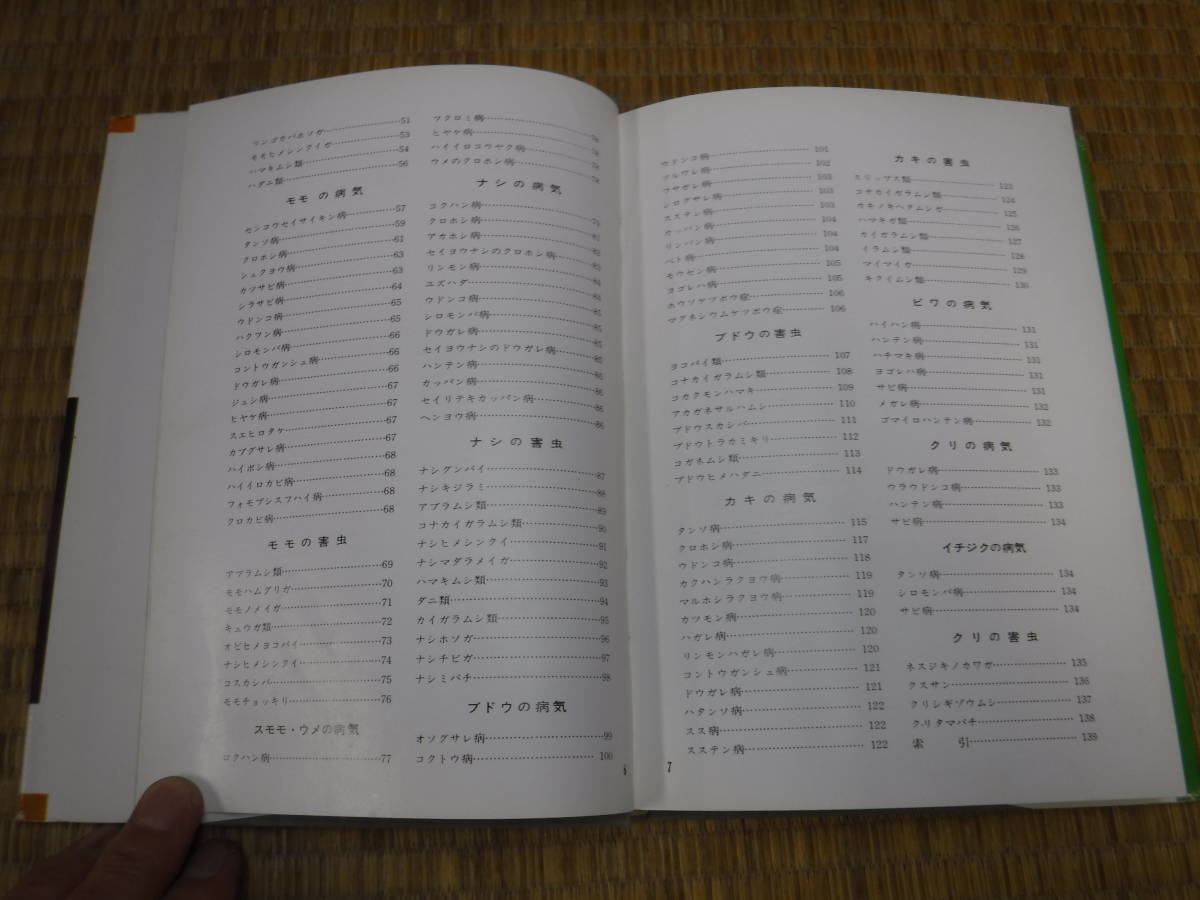 リンゴカバホソガ……51
モモヒメシンクイガ……53
ハマキムシ類……54
ハダニ類……56
モモの病気
センコウセイサイキン病……57
タンソ病……59
クロホシ病……61
シュクヨウ病……63
カツサビ病……63
シラサビ病……64
ウドンコ病……65
ハクフン病……65
シロモンパ病……66
コントウガンシュ病……66
ドウガレ病……66
ジュシ病……67
ヒヤケ病……67
スエヒロタケ……67
カブグサレ病……67
ハイボシ病……68
ハイイロカビ病……68
フォモプシスフハイ病……68
クロカビ病……68
モモの害虫
アブラムシ類……69
モモハムグリガ……70
モモノメイガ……71
キュウガ類……72
オビヒメヨコバイ……73
ナシヒメシンクイ……74
コスカシバ……75
モモチョッキリ……76
スモモ・ウメの病気
コクハン病……77
フクロミ病……
ヒヤケ病……
ハイイロコウヤク病……
ウメのクロホシ病……
ナシの病気
コクハン病……
クロホシ病……
アカホシ病……
セイヨウナシのクロホシ病……
リンモン病……
ユズハダ……
ウドンコ病……
シロモンパ病……85
ドウガレ病……85
セイヨウナシのドウガレ病……85
ハンテン病……86
カッパン病……86
セイリテキカッパン病……86
ヘンヨウ病……86
ナシの害虫
ナシグンバイ……87
ナシキジラミ……88
アブラムシ類……89
コナカイガラムシ類……90
ナシヒメシンクイ……91
ナシマダラメイガ……92
ハマキムシ類……93
ダニ類……94
カイガラムシ類……95
ナシホソガ……96
ナシチビガ……97
ナシミバチ……98
ブドウの病気
オソグサレ病……99
コクトウ病……100
6
ウドンコ病……101
ツルワレ病……102
フサガレ病……103
シログサレ病……103
スステン病……103
カッパン病……104
リンパン病……104
ベト病……104
モウセン病……105
ヨゴレハ病……105
ホウソケツボウ症……106
マグネシウムケツボウ症……106
ブドウの害虫
ヨコバイ類……107
コナカイガラムシ類……108
コカクモンハマキ……109
アカガネサルハムシ……110
ブドウスカシバ……111
ブドウトラカミキリ……112
コガネムシ類……113
ブドウヒメハダニ……114
カキの病気
タンソ病……115
クロホシ病……117
ウドンコ病……118
カクハンラクヨウ病……119
マルホシラクヨウ病……119
カツモン病……120
ハガレ病……120
リンモンハガレ病……120
コントウガンシュ病……121
ドウガレ病……121
ハタンソ病……122
スス病……122
スステン病……122
7
カキの害虫
スリップス類……123
コナカイガラムシ類……124
カキノキヘタムシガ……125
ハマキガ類……126
カイガラムシ類……127
イラムシ類……128
マイマイガ……129
キクイムシ類……130
ビワの病気
ハイハン病……131
ハンテン病……131
ハチマキ病……131
ヨゴレハ病……131
サビ病……131
メガレ病……132
ゴマイロハンテン病……132
クリの病気
ドウガレ病……133
ウラウドンコ病……133
ハンテン病……133
サビ病……134
イチジクの病気
タンソ病……134
シロモンパ病……134
サビ病……134
クリの害虫
ネスジキノカワガ……135
クスサン……136
クリシギゾウムシ……137
クリタマバチ……138
索引……139